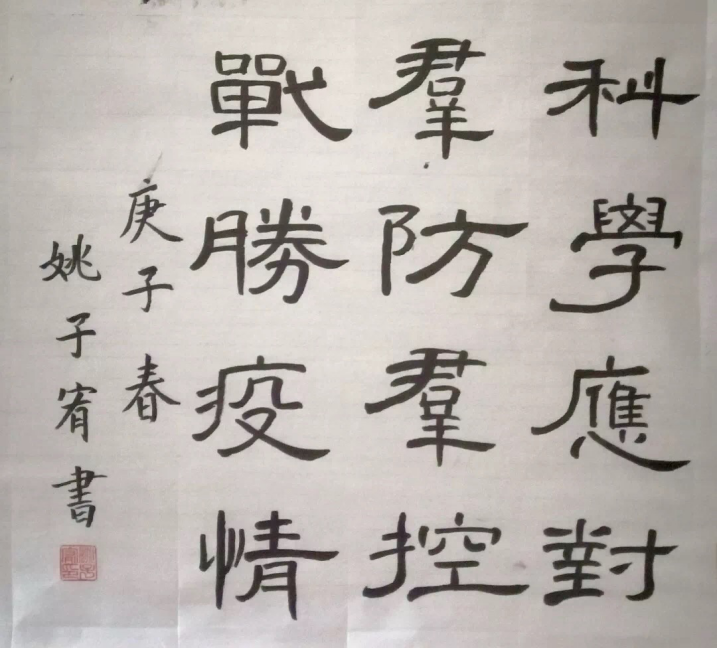 科學應對
羣防羣控
戰勝疫情
庚子春
姚子宥書